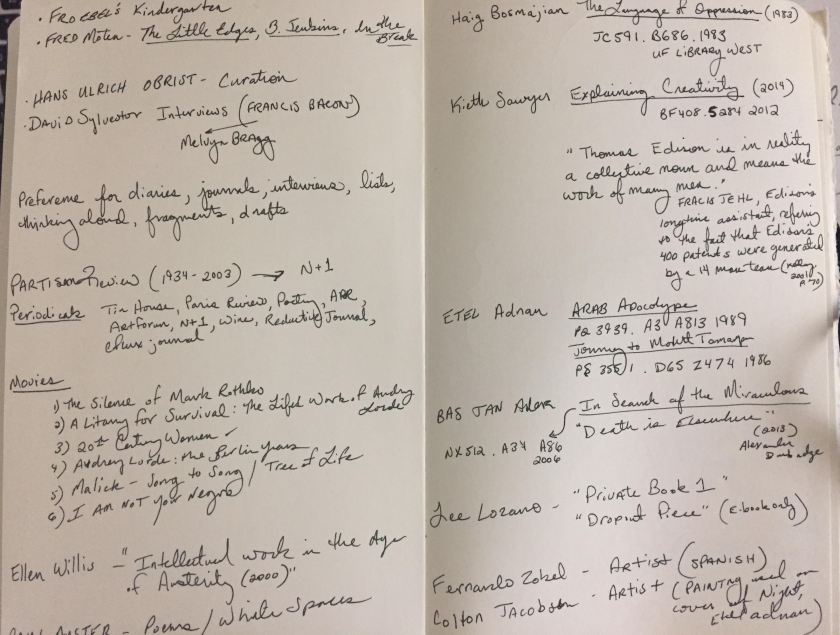 . FROEBEL'S Kindergarten
. FRED Moten - The Little Edges, B. Jenkins, In the
Break
. HANS ULRICH OBRIST - Curation
. DAVID Sylvestor Interviews (FRANCIS BACON)
Melvyn BRAGG
Preference for diaries, journals, interviews, lists,
thinking aloud, fragments, drafts
PARTISAN Review (1934-2003) → N+1
Periodicals Tin House, Paris Review, Poetry, APR,
Artforum, N+1, Wire, Reductive Journal,
eflux journal
Movies
1) The Silence of Mark Rothko
2) A Litany for Survival: The Life & Work of Audry
Lorde
3) 20th Century Women ✓
4) Audrey Lorde: the Berlin years
5) Malick - Song to Song / Tree of Life
6) I AM NOT YOUR Negro
Ellen Willis - "Intellectual work in the Age
of Austerity (2000)"
AUSTER - Poems / White Spaces
Haig Bosmajian The Language of Oppression (1983)
JC591. B686. 1983
UF LIBRARY WEST
Kieth Sawyer Explaining Creativity (2014)
BF408. S284 2012
"Thomas Edison is in reality
a collective noun and means the
work of many men."
FRACIS JEHL, Edison's
longtime assistant, refering
to the fact that Edison's
400 patents were generated
by a 14 man team
ETEL Adnan ARAB Apocolypse
PQ 3939. A3 A813 1989
Journey to Mount Tamalp
PS 3551. D65 Z474 1986
BAS JAN Ader In Search of the Miraculous
"Death is Elsewhere"
(2013)
Alexander
Dumbadge
NX512. A34 A86
2006
Lee Lozano - "Private Book 1"
"Dropout Piece" (E-book only)
Fernando Zobel - Artist (SPANISH)
Colton JACOBSEN - Artist (PAINTNG used on
cover of Night,
Etel adnan)